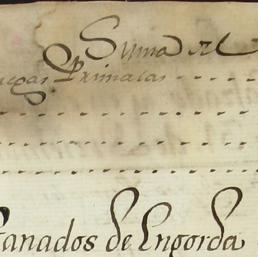 Suma el
Primalas
Ganados de Engorda